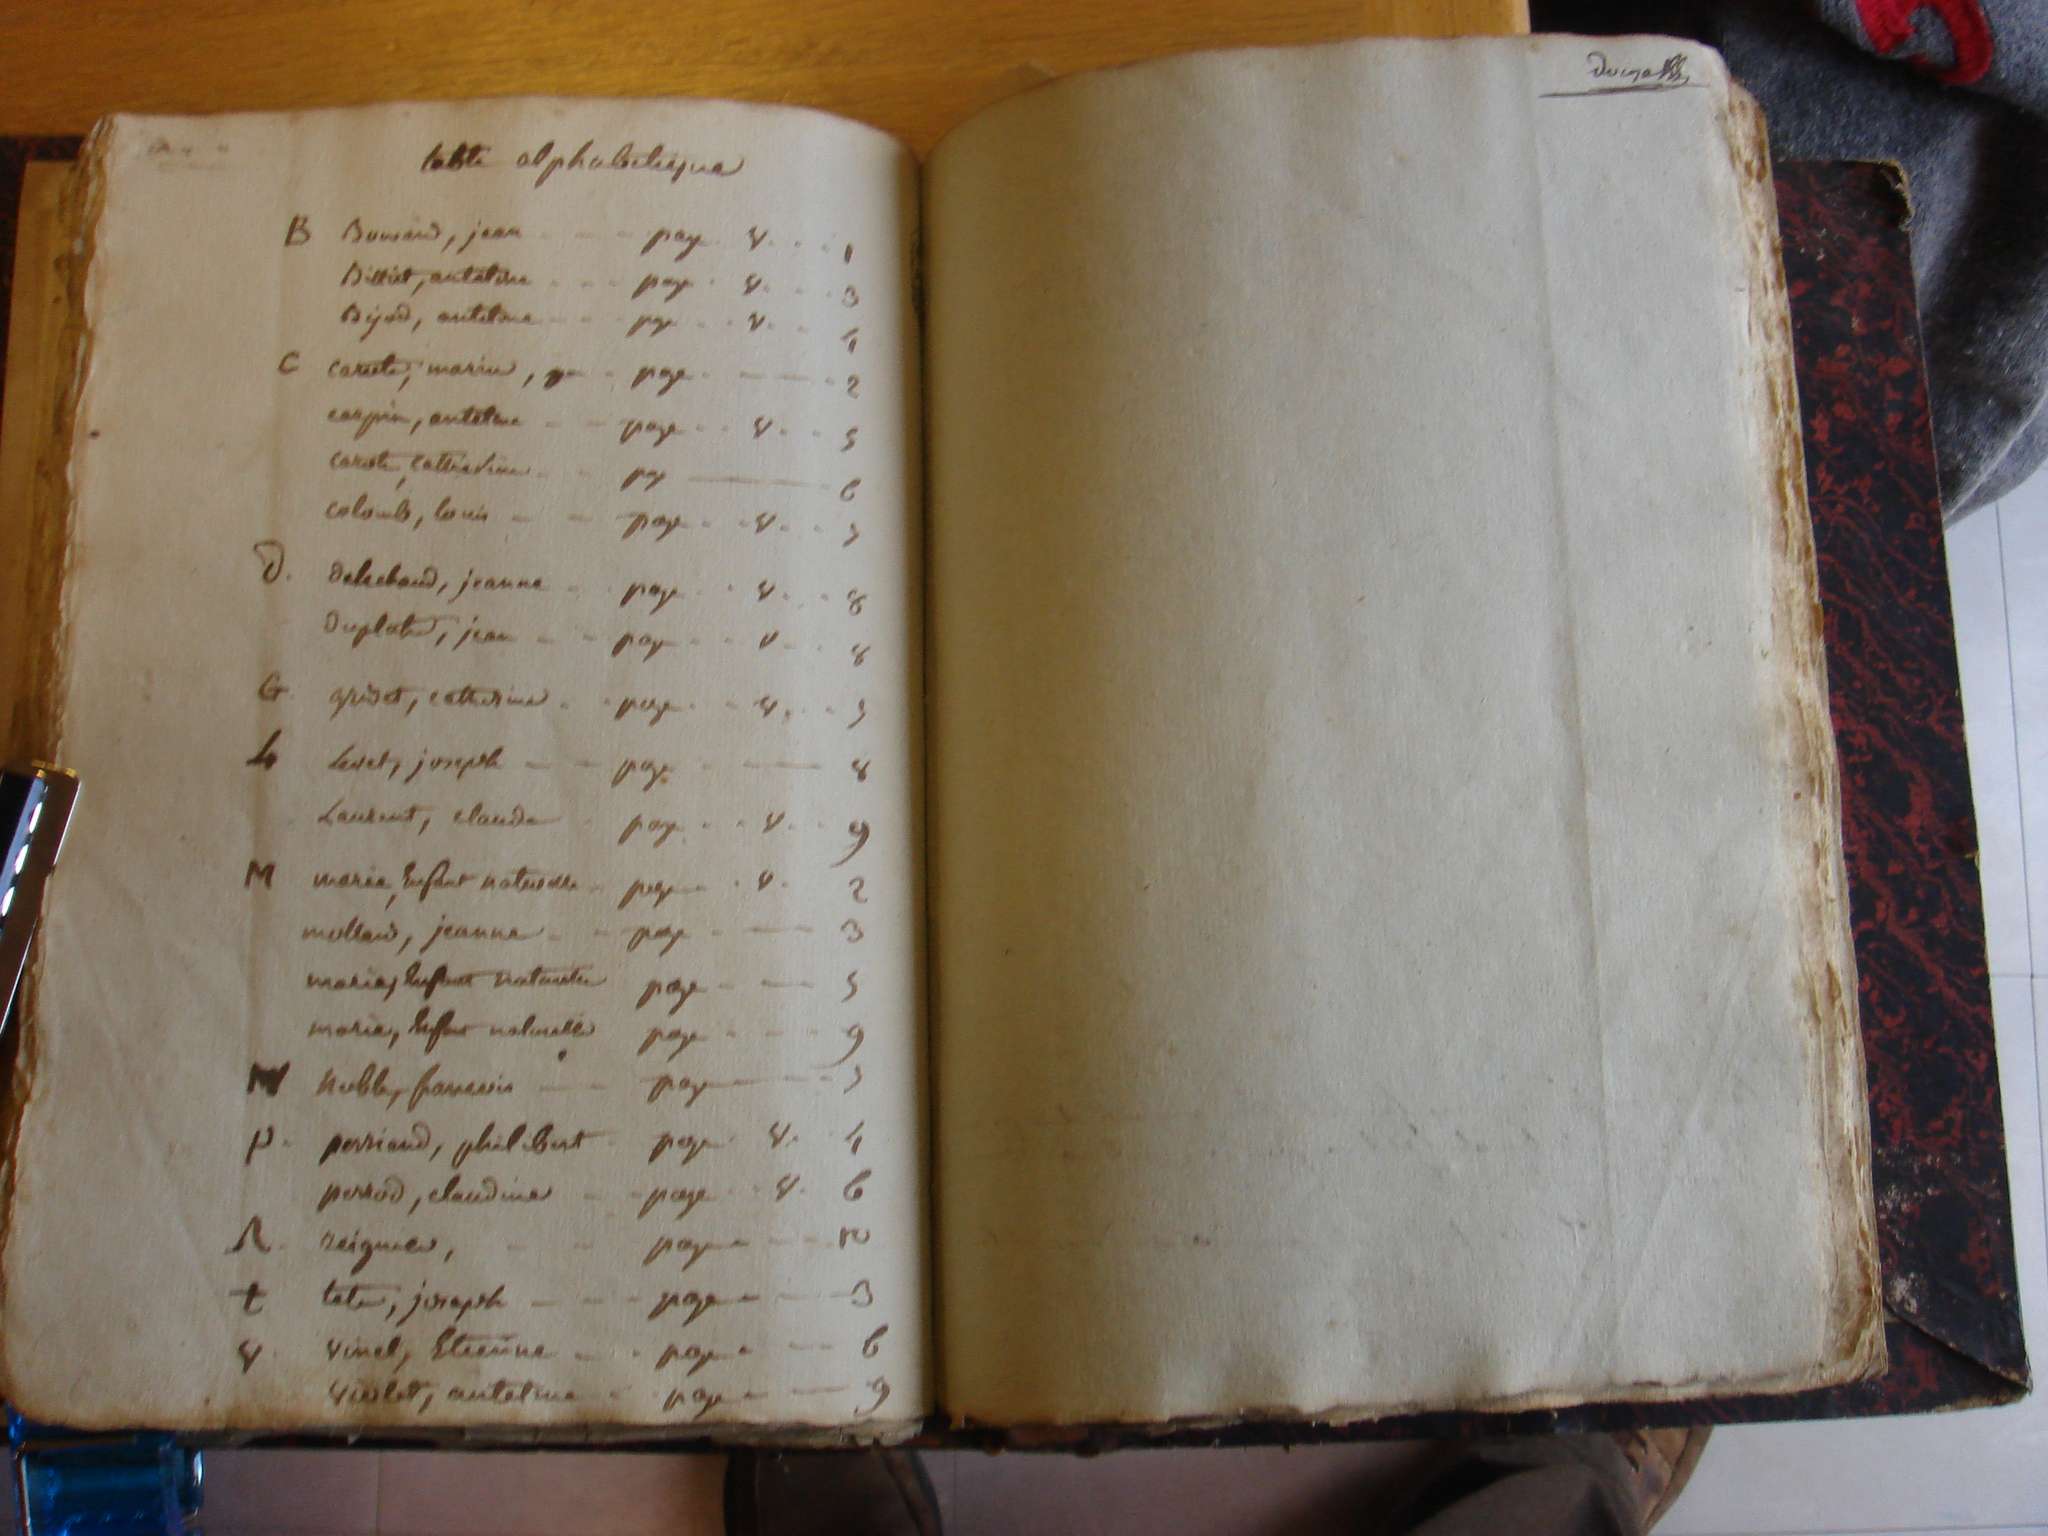 table alphabetique
B Buisard, jean - - - page v. . . 1
Billiet, antelme - - - page v. - - 3
Bijod, antelme - - - page - v - - 4
C carite, marie, - - page - - - 2
carpin, antelme - - page - - v. - 5
carite, catherine - - page — 6
colomb, louis - - page - - v - - 5
D. page - - v - - 8
jean - - - page - - v - - 8
G. gridet, catherine - - page - - v. - 5
L Levet, joseph - - page - — 8
Laurent, claude - page - - v - - 9
M marie, Enfant naturelle page - v - 2
mollard, jeanne - - page - — 3
marie, Enfant naturelle page - — 5
marie, Enfant naturelle page - - - 9
N Noble, francois — page — 5
p. perriand, philibert page - v. - 4
perrod, claudine - - page - - v. 6
R. reignier, - - page - -
t joseph - - - page - - 3
v. vinel, Etienne - - page - - 6
violet, antelme - page - — 9